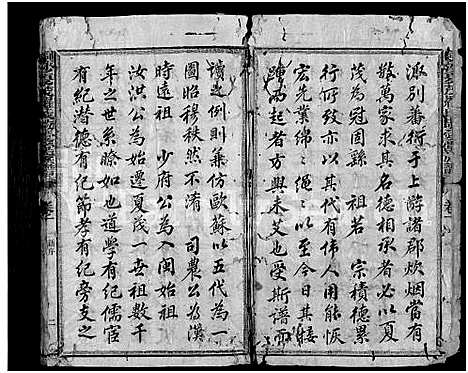 派別蕃衍于上游諸郡炊烟當有
數萬家求其名德相承者必以夏
茂為冠固縣 祖若 宗積德累
行所致亦以其代有偉人用能恢
宏先業綿綿繩繩以至今日其接
踵而起者方興未艾也爰斯譜而
讀之例則兼仿歐蘇以五代為一
圖昭穆秩然不淆 司農公為漢
時遠祖 少府公為入閩始祖
汝洪公為始遷夏茂一世祖數千
年之世系瞭如也道學有紀儒宦
有紀潛德有紀節孝有紀旁支之